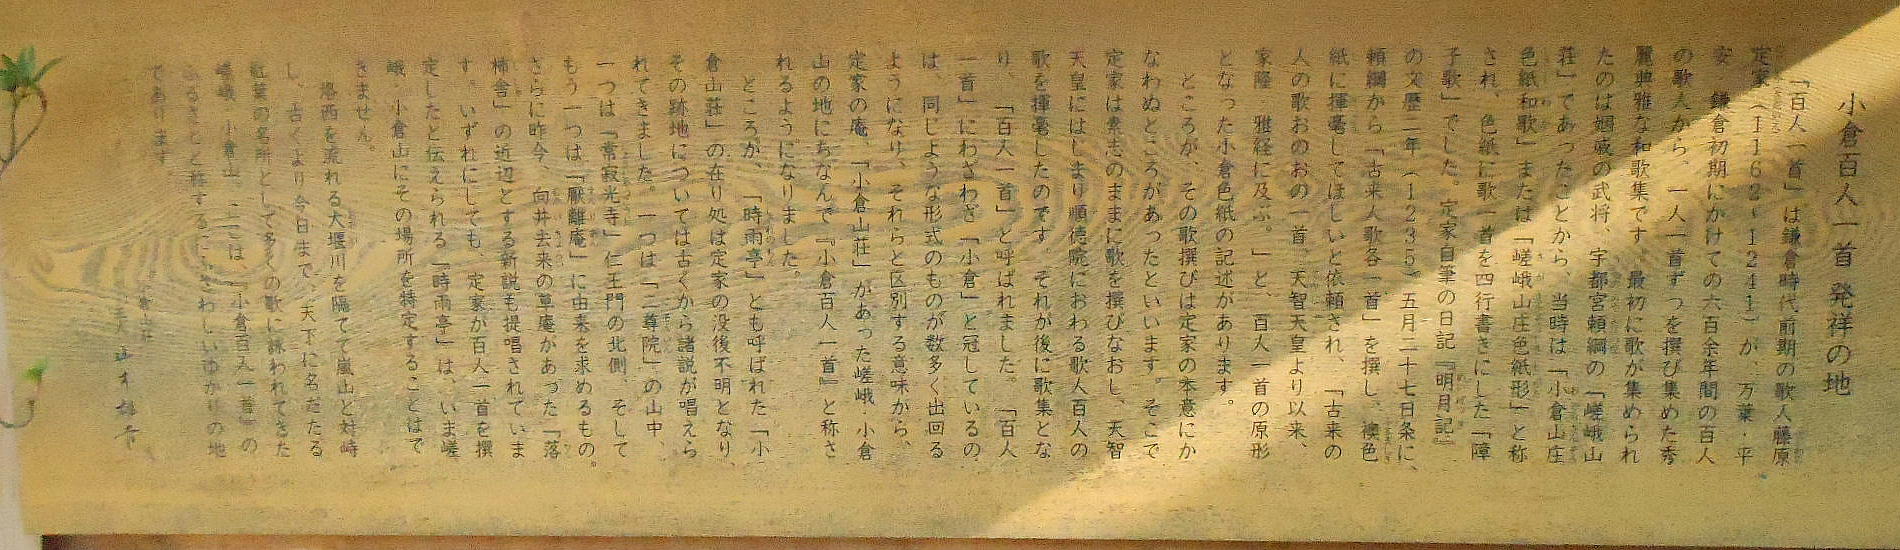 小倉百人一首 発祥の地
「百人一首」は鎌倉時代前期の歌人藤原
定家(1162〜1241)が、万葉・平
安・鎌倉初期にかけての六百余年間の百人
の歌人から、一人一首ずつを撰び集めた秀
麗典雅な和歌集です。最初に歌が集められ
たのは姻戚の武将、宇都宮頼綱の「嵯峨山
荘」であったことから、当時は「小倉山庄
色紙和歌」または「嵯峨山庄色紙形」と称
され、色紙に歌一首を四行書きにした「障
子歌」でした。定家自筆の日記『明月記』
の文歴二年(1235)五月二十七日条に、
頼綱から「古来人歌各一首」を撰し、襖色
紙に揮毫してほしいと依頼され、「古来の
人の歌おのおの一首、天智天皇より以来、
家隆・雅経に及ぶ。」と、百人一首の原形
となった小倉色紙の記述があります。
ところが、その歌撰びは定家の本意にか
なわぬところがあったといいます。そこで
定家は素志のままに歌を撰びなおし、天智
天皇にはじまり順徳院におわる歌人百人の
歌を揮毫したのです。それが後に歌集とな
り、「百人一首」と呼ばれました。「百人
一首」にわざわざ「小倉」と冠しているの
は、同じような形式のものが数多く出回る
ようになり、それらと区別する意味から、
定家の庵、「小倉山荘」があった嵯峨・小倉
山の地にちなんで『小倉百人一首』と称さ
れるようになりました。
ところが、「時雨亭」とも呼ばれた「小
倉山荘」の在り処は定家の没後不明となり、
その跡地については古くから諸説が唱えら
れてきました。一つは「二尊院」の山中、
一つは「常寂光寺」仁王門の北側、そして
もう一つは「厭離庵」に由来を求めるもの。
さらに昨今、向井去来の草庵があった「落
柿舎」の近辺とする新説も提唱されていま
す。いずれにしても、定家が百人一首を撰
定したと伝えられる『時雨亭』は、いま嵯
峨・小倉山にその場所を特定することはで
きません。
洛西を流れる大堰川を隔てて嵐山と対峙
し、古くより今日まで、天下に名だたる
紅葉の名所として多くの歌に詠われてきた
嵯峨・小倉山。ここは、『小倉百人一首』の
ふるさとと称するにふさわしいゆかりの地
であります